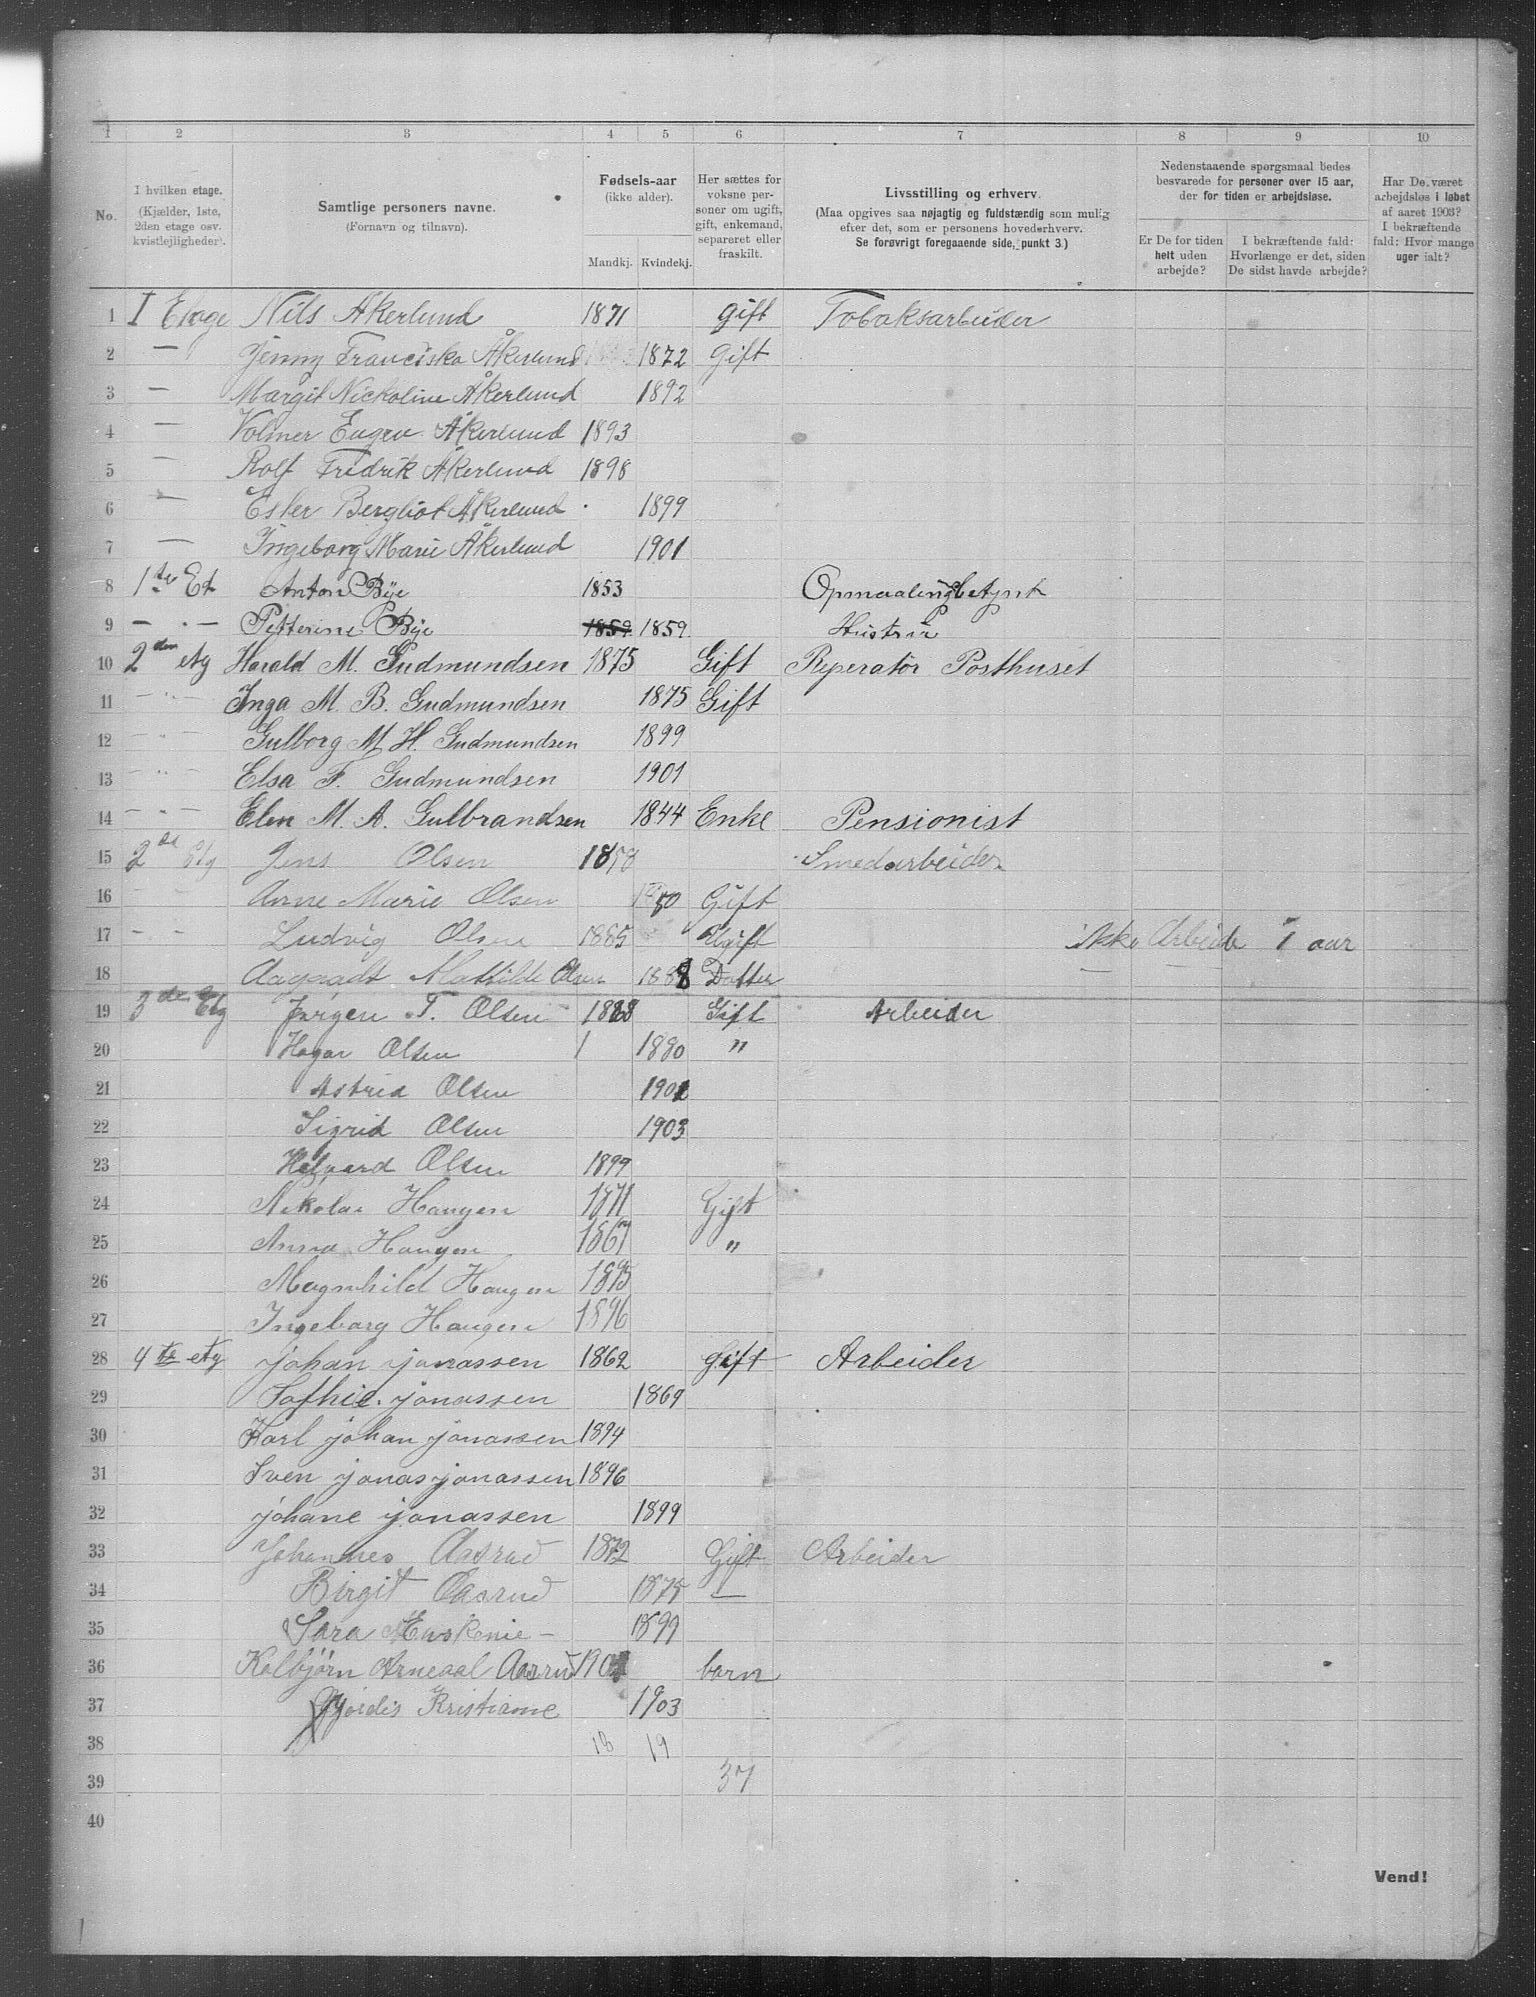 1 2 3 4 5 6 7 8 9 10
No.
I hvilken etage.
(Kjælder, 1ste,
2den etage osv.
kvistlejligheder).
Samtlige personers navne.
(Fornavn og tilnavn).
Fødsels-aar
(ikke alder).
Mandkj. Kvindekj.
Her sættes for
voksne per-
soner om ugift,
gift, enkemand,
separeret eller
fraskilt.
Livsstilling og erhverv.
(Maa opgives saa nøjagtig og fuldstændig som mulig
efter det, som er personens hovederhverv.
Se forøvrigt foregaaende side, punkt 3.)
Nedenstaaende spørgsmaal bedes
besvarede for personer over 15 aar,
der for tiden er arbejdsløse.
Er De for tiden
helt uden
arbejde?
I bekræftende fald:
Hvorlænge er det, siden
De sidst havde arbejde?
Har De været
arbejdsløs i løbet
af aaret 1903?
I bekræftende
fald: Hvor mange
uger ialt?
1 I Etage Nils Åkerlund 1871 gift Tobaksarbeider
2 — Jenny Franciska Åkerlund 1872 Gift
3 — Margit Nickoline Åkerlund 1892
4 — Volmer Eugen Åkerlund 1893
5 — Rolf Fredrik Åkerlund 1898
6 — Ester Bergliot Åkerlund 1899
7 — Ingeborg Marie Åkerlund 1901
8 1ste Et Anton Bye 1853
9 — " — Petterine Bye 1859 1859 Hustru
10 2den etg Harald M. Gudmundsen 1875 Gift Reperatör Posthuset
11 — " — Inga M. B. Gudmundsen 1875 Gift
12 — " — Gulborg M. H. Gudmundsen 1899
13 — " — Elsa F. Gudmundsen 1901
14 — " — Elen M. A. Gulbrandsen 1844 Enke Pensionist
15 2de Etg Jens Olsen 1858 Smedarbeider
16 Anne Marie Olsen Gift
17 - - Ludvig Olsen 1885 Ugift ikke Arbeide i aar
18 Mathilde Olsen 1888 Datter
19 3de Etg Jørgen T. Olsen Gift Arbeider
20 Hagar Olsen 1880 "
21 Astrid Olsen 1901
22 Sigrid Olsen 1903
23 Halvard Olsen 1899
24 Nikolai Haugen 1871 Gift
25 Anna Haugen 1867 "
26 Magnhild Haugen 1895
27 Ingeborg Haugen 1896
28 4te etg johan jonassen 1862 gift Arbeider
29 Sofhie jonassen 1869
30 Karl johan jonassen 1894
31 Sven jonas jonassen 1896
32 johane jonassen 1899
33 Johannes Aasrud 1872 Gift Arbeider
34 Birgit Aasrud 1875 —
35 Sara 1899
36 Kolbjørn Aasrud barn
37 Hjördis Kristiane 1903
38 18 19
39 37
40
Vend!